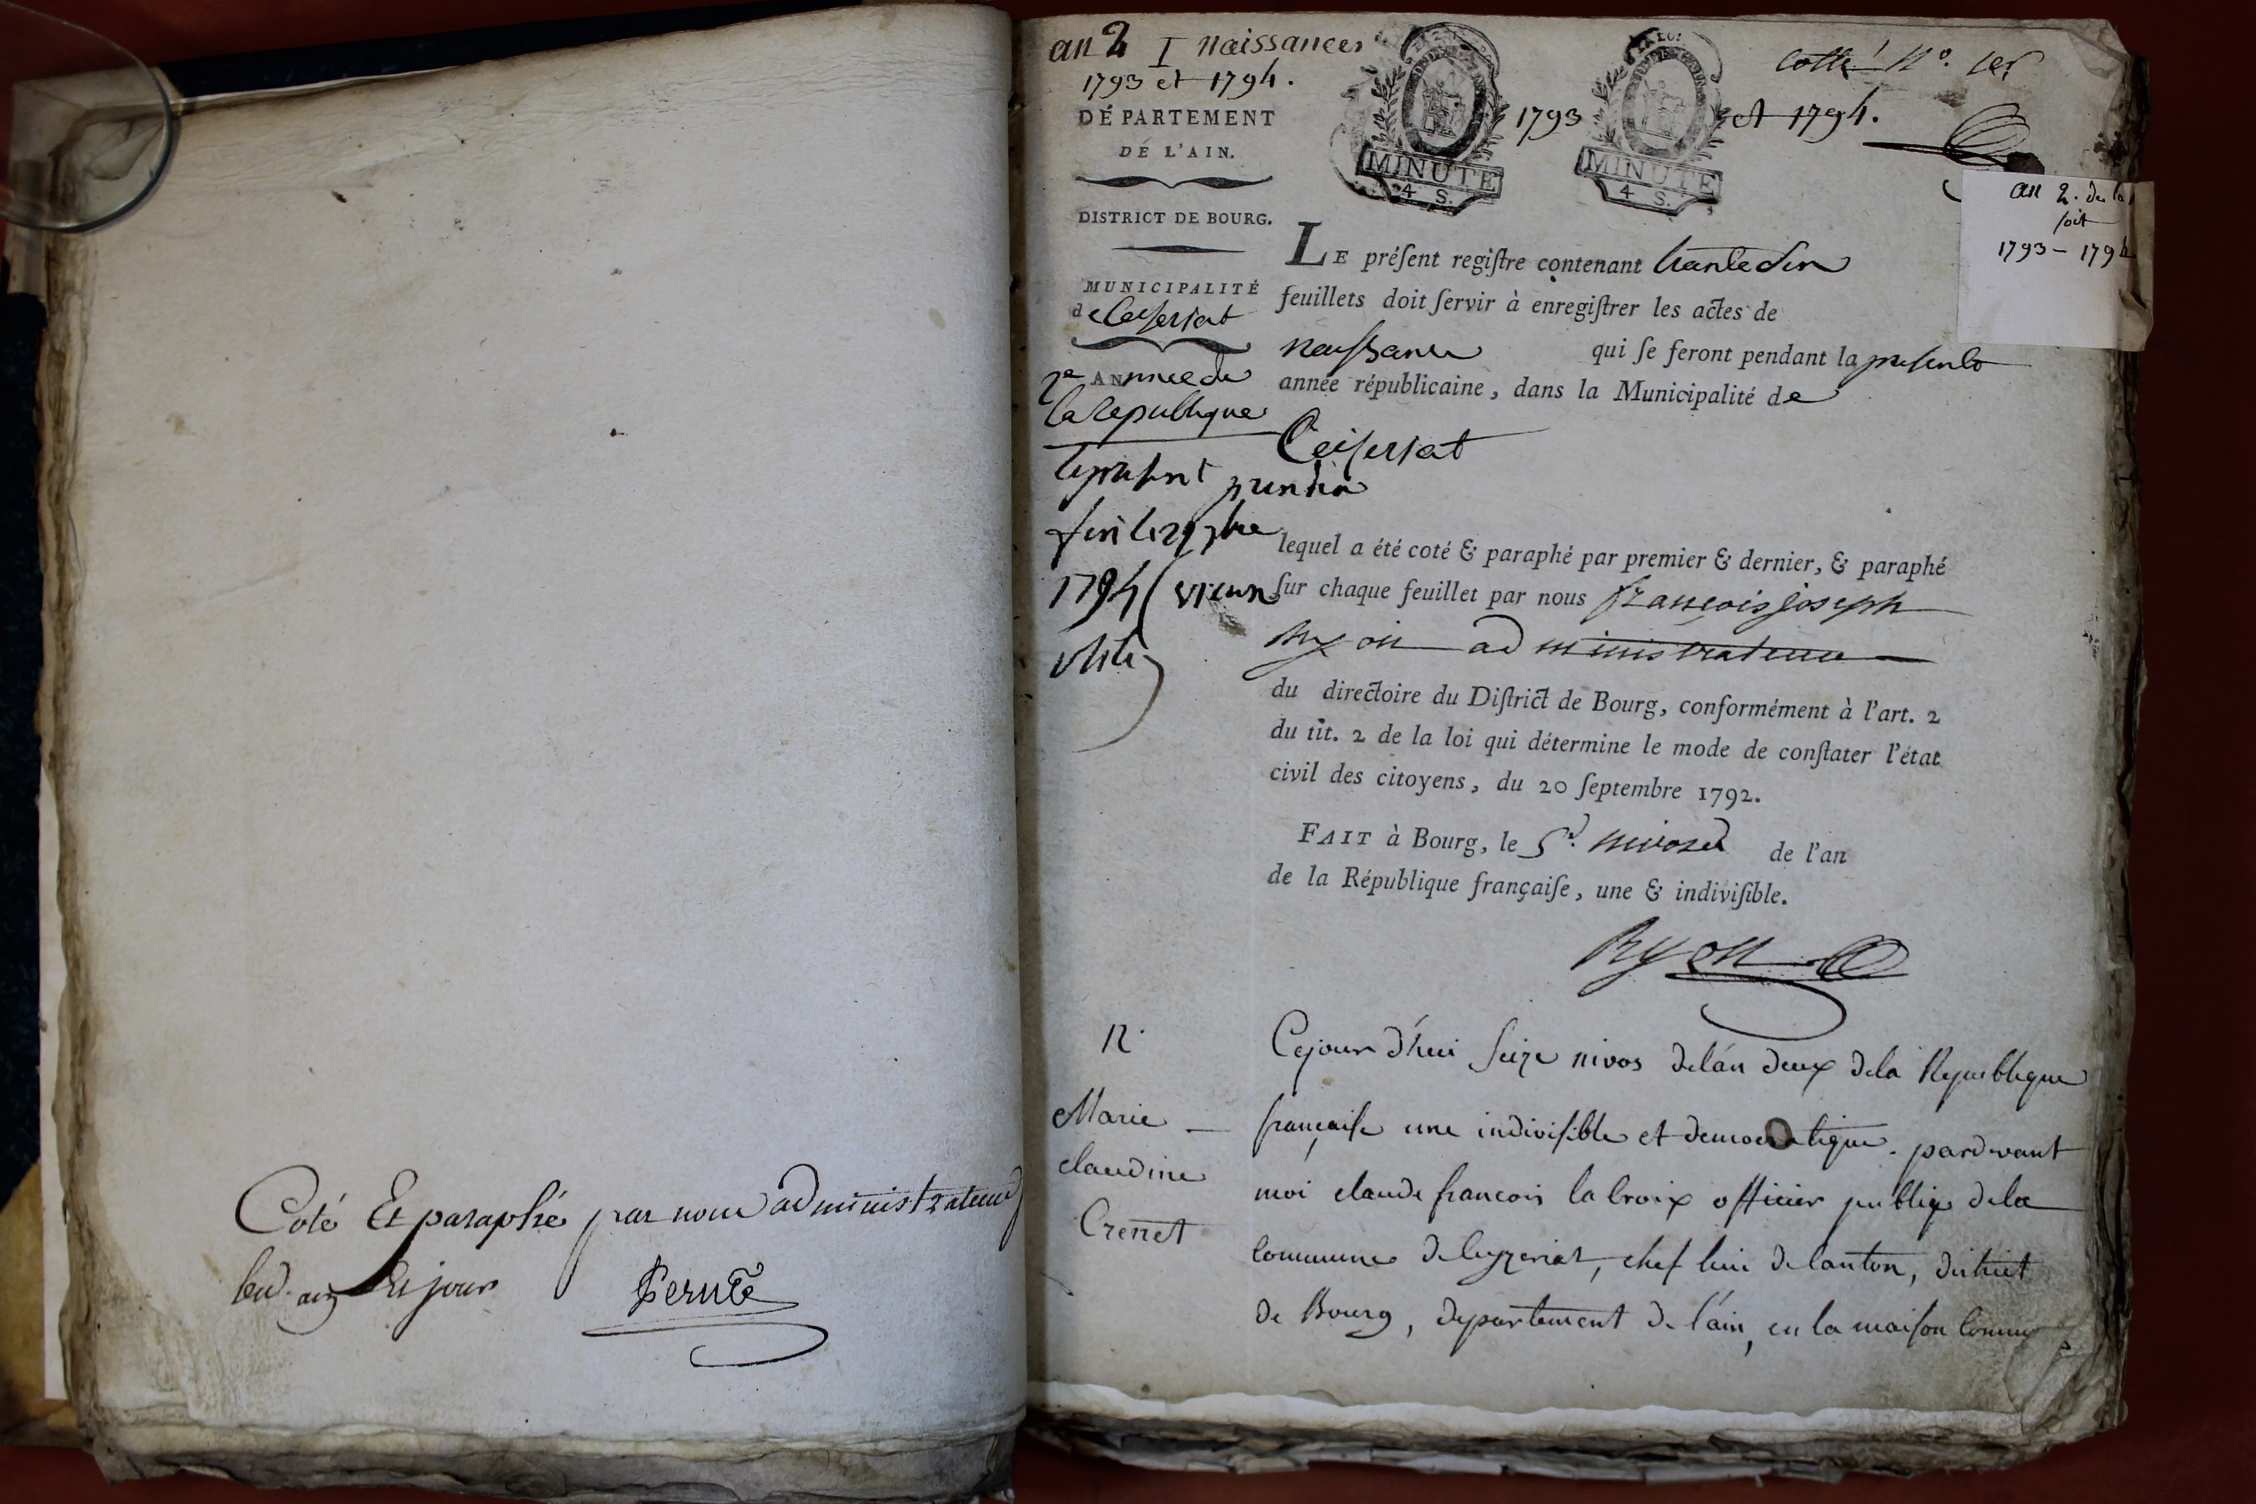 Coté Et paraphé par nous administrateur
led. an Et jour
Perucé
an 2 I naissances
1793 et 1794.
Cotté N.º 1er
MINUTE
4 S.
1793
LA LOI
MINUTE
4 S.
et 1794.
an 2. de la
soit
1793 - 179
DÉPARTEMENT
DE L'AIN.
DISTRICT DE BOURG.
MUNICIPALITÉ
de Ceiseriat
2e ANnnee de
la republique
le present
fini le 29 7bre
1794 (vieux
stile)
LE préſent regiſtre contenant trente six
feuillets doit ſervir à enregiſtrer les actes de
naissance qui ſe feront pendant la presente
année républicaine, dans la Municipalité de
Ceiseriat
lequel a été coté & paraphé par premier & dernier, & paraphé
ſur chaque feuillet par nous françois joseph
Ryon administrateur
du directoire du Diſtrict de Bourg, conformément à l'art. 2
du tit. 2 de la loi qui détermine le mode de conſtater l'état
civil des citoyens, du 20 ſeptembre 1792.
FAIT à Bourg, le 5. nivose de l'an
de la République françaiſe, une & indiviſible.
Ryon
N.
Marie
claudine
Crenet
Cejourd'hui seize nivos delán deux dela Republique
française une indivisible et democratique. pardevant
moi claude francois lacroix officier publiq dela
commune de Ceyzeriat, chef lieu de canton, district
de Bourg, departement de l'ain, en la maison commu